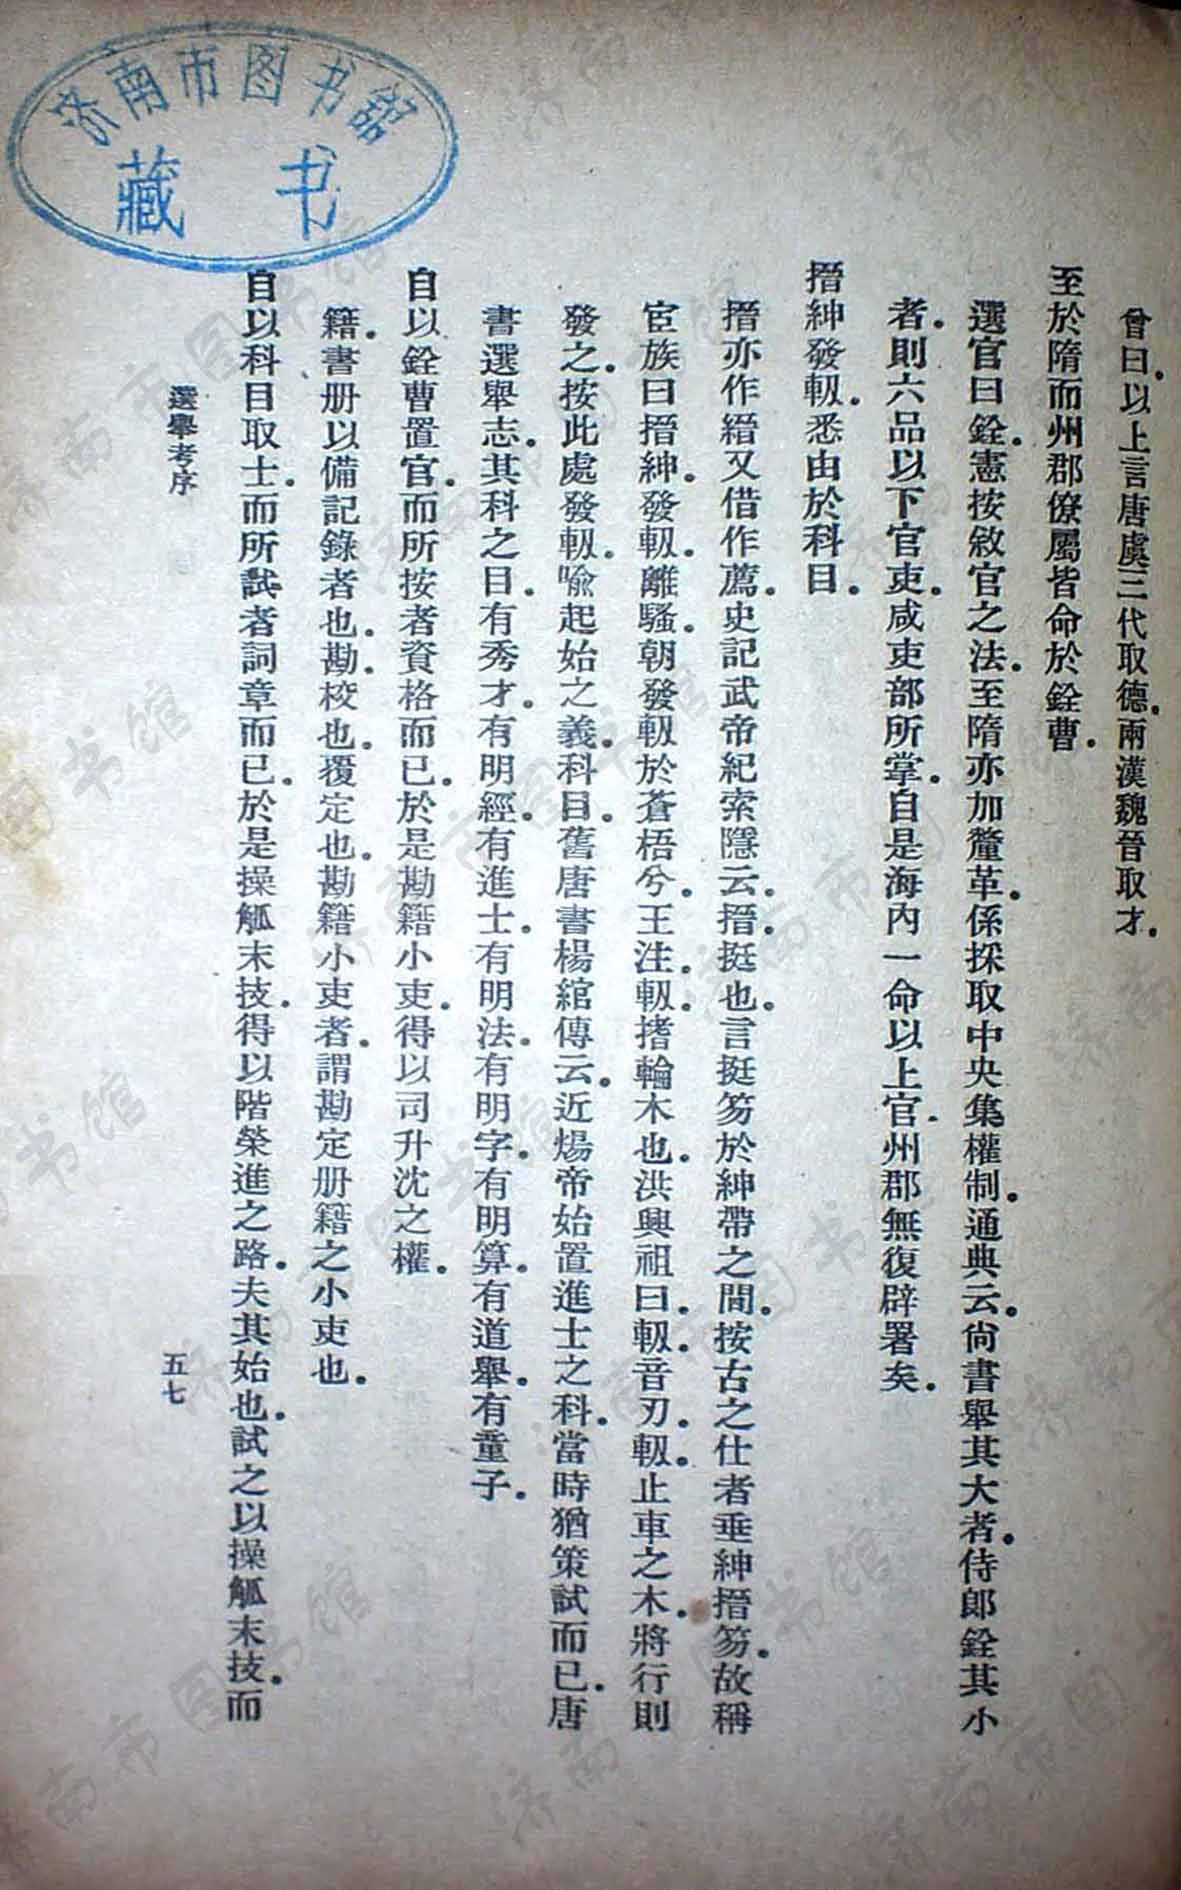 济南市图书馆
藏书
曾曰.以上言唐虞三代取德.兩漢魏晉取才.
至於隋而州郡僚屬皆命於銓曹.
選官曰銓.憲按敘官之法.至隋亦加釐革.係採取中央集權制.通典云.尙書舉其大者.侍郎銓其小
者.則六品以下官吏.咸吏部所掌.自是海內一命以上官.州郡無復辟署矣.
搢紳發軔.悉由於科目.
搢亦作縉又借作薦.史記武帝紀索隱云.搢.挺也.言挺笏於紳帶之間.按古之仕者垂紳搢笏.故稱
宦族曰搢紳.發軔.離騷.朝發軔於蒼梧兮.王注.軔.搘輪木也.洪興祖曰.軔.音刃.軔.止車之木.將行則
發之.按此處發軔.喩起始之義.科目.舊唐書楊綰傳云.近煬帝始置進士之科.當時猶策試而已.唐
書選舉志.其科之目.有秀才.有明經.有進士.有明法.有明字.有明算.有道舉.有童子.
自以銓曹置官.而所按者資格而已.於是勘籍小吏.得以司升沈之權.
籍.書册以備記錄者也.勘.校也.覆定也.勘籍小吏者.謂勘定册籍之小吏也.
自以科目取士.而所試者詞章而已.於是操觚末技.得以階榮進之路.夫其始也.試之以操觚末技.而
選舉考序
五七